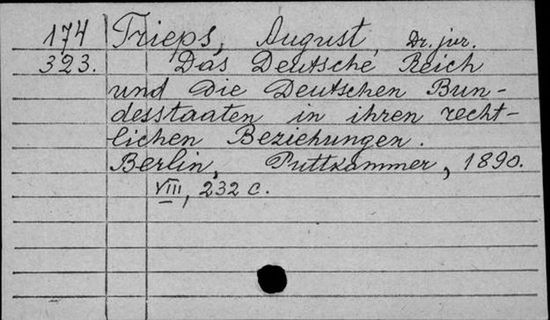 174 Trieps, August, Dr. jur.
323. Das Deutsche Reich
und die Deutschen Bun-
desstaaten in ihren recht-
lichen Beziehungen.
Berlin, Puttkammer, 1890.
VIII, 232 c.